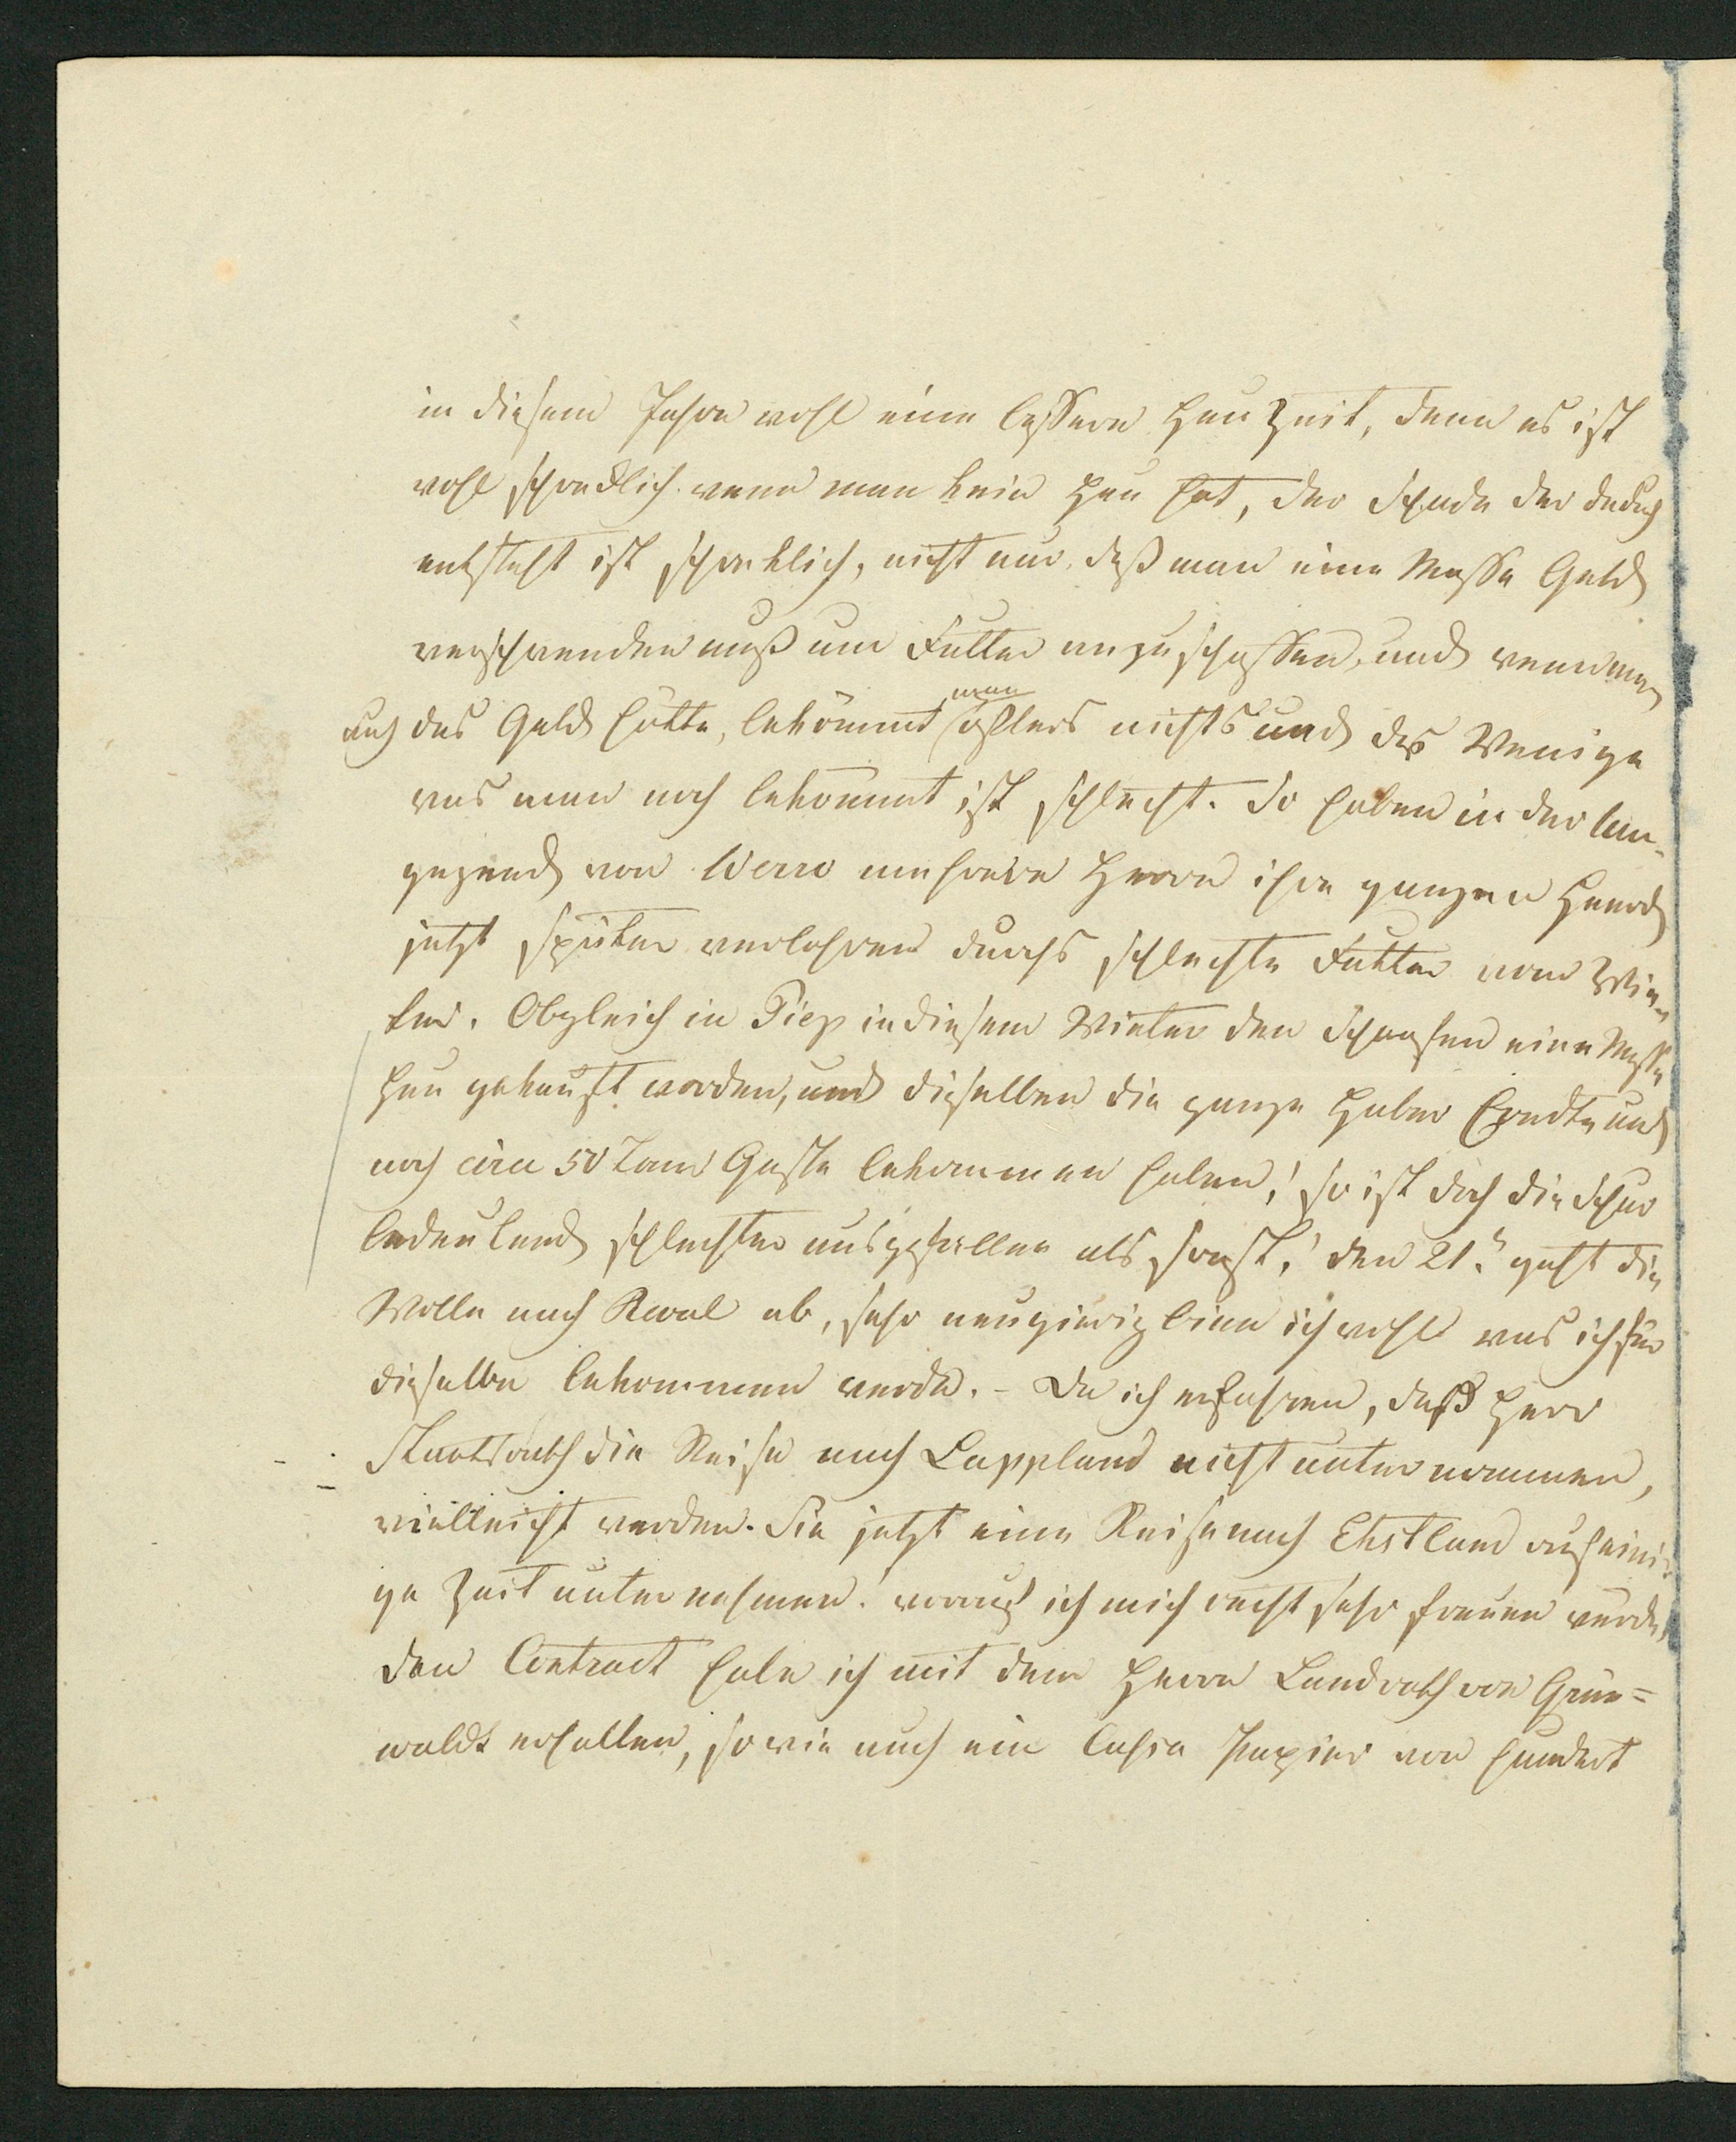 in diesem Jahre wohl eine bessere Heu Zeit, denn es ist
wohl schrecklich wenn man kein Heu hat, der Schade der daduch
entsteht ist schrecklich, nicht nur, daß man eine Masse Geld
verschwenden muß um Futter anzuschaffen, und wenn man
auch das Geld hätte, bekömmt man öfters nichts und das Wenige
was man noch bekömmt ist schlecht. So haben in der Um-
gegend von Werro mehrere Herrn ihre ganzen Heerd
jetzt später verlohren durchs schlechte Futter vom Win-
ter. Obgleich in Piep in diesem Winter den Schaafen eine Masse
Heu gekauft worden, und dieselben die ganze Haber Erndte und
noch circa 50 Tonn Gerste bekommen haben, so ist doch die Schur
bedeutend schlechter ausgefallen als sonst, den 21. geht die
Wolle nach Reval ab, sehr neugierig binn ich wohl was ich für
dieselbe bekommen werde. – Da ich erfahren, daß Herr
Staatsrath die Reise nach Lappland nicht unternommen,
vielleicht werden Sie jetzt eine Reise nach Ehstland auf eini-
ge Zeit unternehmen! worauf ich mich recht sehr freuen würde,
den Contract habe ich mit dem Herrn Landrath von Grüne-
waldt erhalten, so wie auch ein Papier von hundert